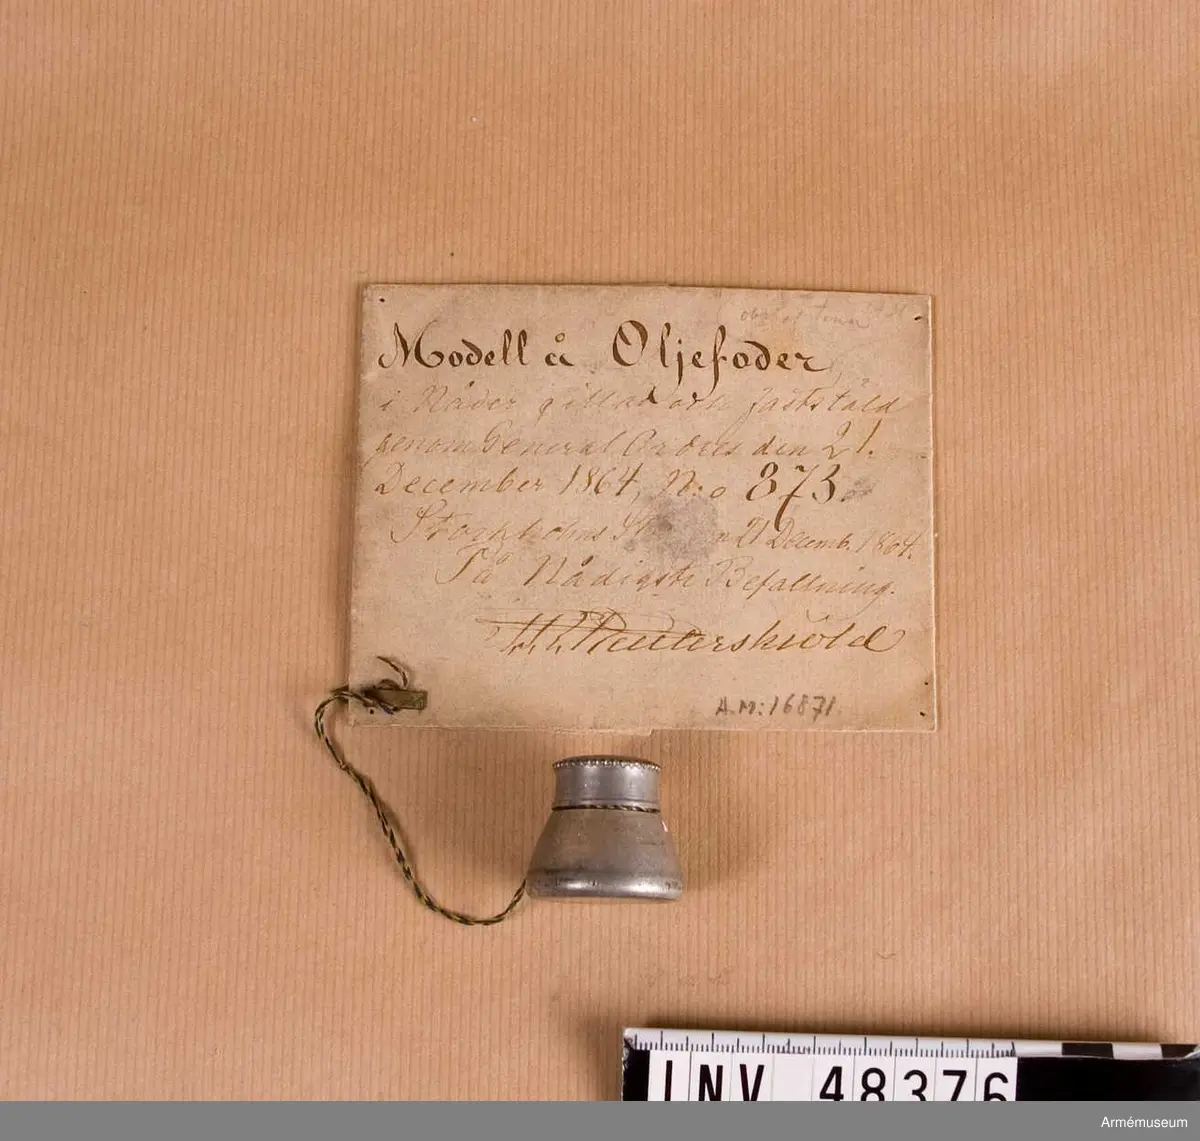 Modell å Oljefoder
i Nåder gillad och fastställd
genom General Ordres den 21.
December 1864, N:o 873.
Stockholms 21 Decemb. 1864.
På Nådigste Befallning.
A.M:16871.
INV 48376
Armémuseum